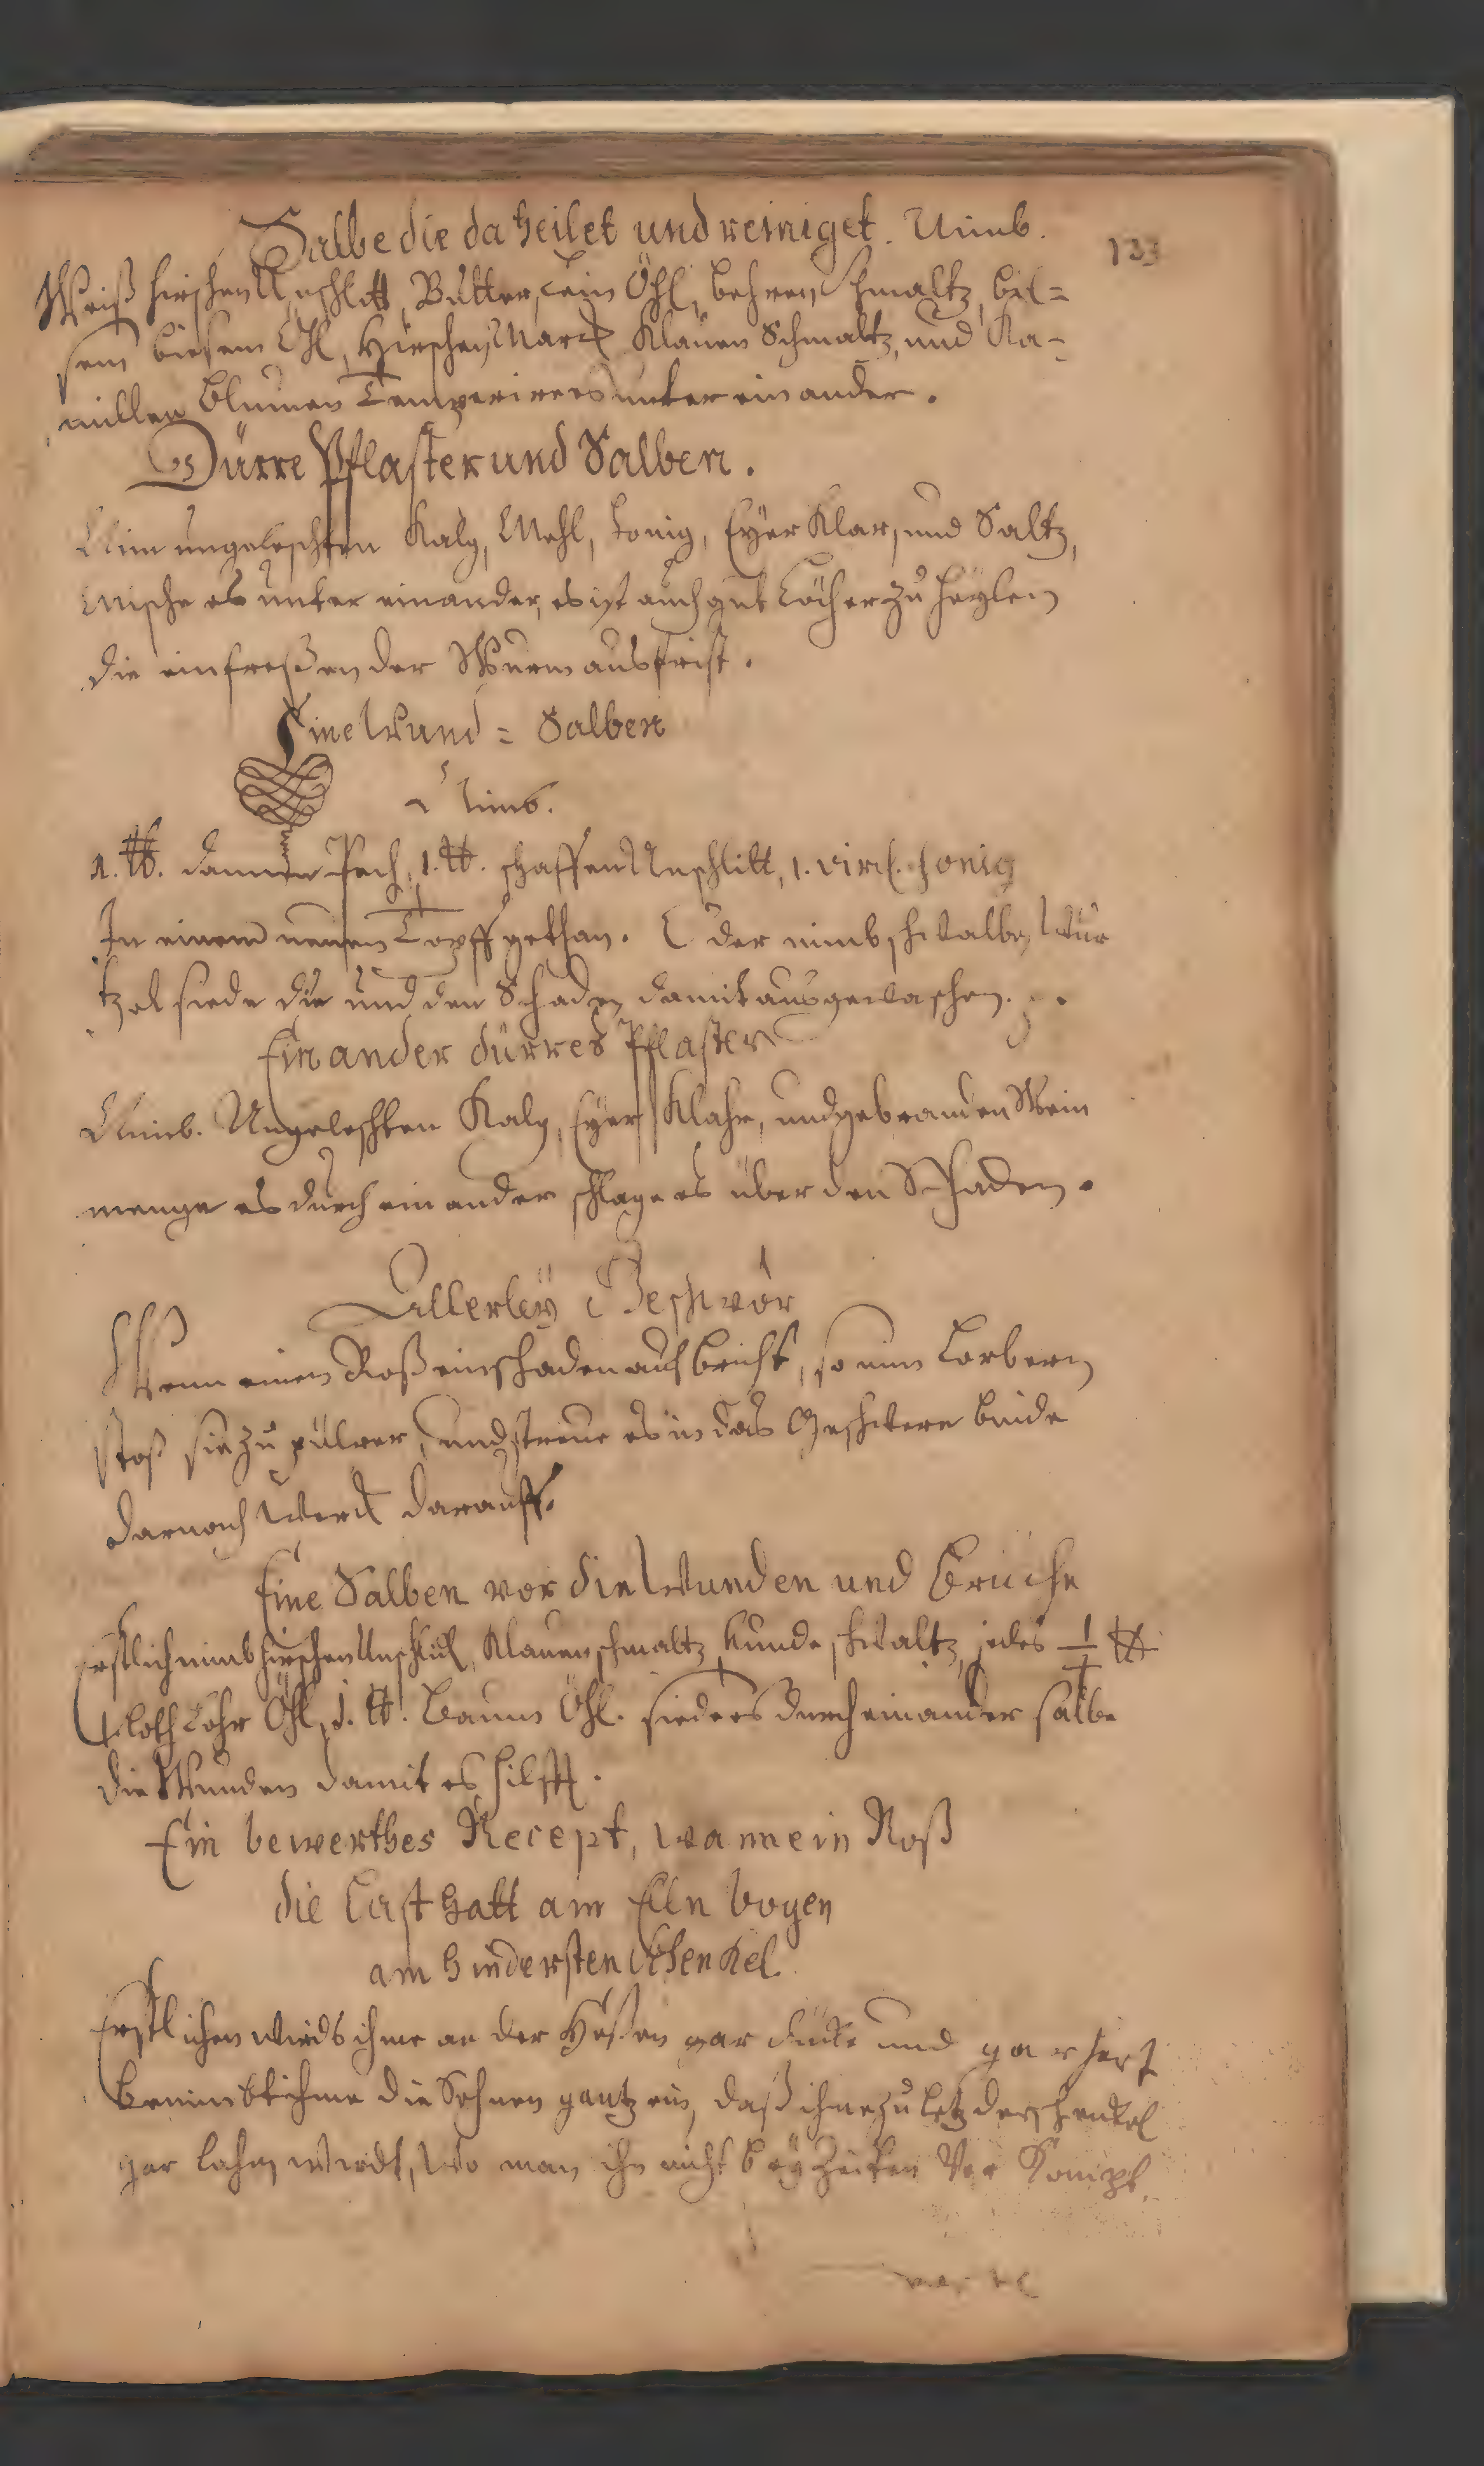 Salbe die da heilet und reiniget. Nimb.
133
Weiß hirschen Unschlitt, Butter, Lein Öhl, behren Schmaltz, bil=
sem Öhl, Hirschen Marck Klauen Schmaltz, und Ka-
millen Blumen Temperires unter ein ander.
Dürre Pflaster und Salben.
Nim ungeleschten Kalg, Mehl, honig, Eÿer Klar, und Saltz,
Mische es unter einander, es ist auch gut Löcher zu heÿlen
die einfreßen der Wurm ausfrist.
Eine Wund = Salben
Nimb.
1. ℔. dannen Pech, 1. ℔. schaffen Unschlitt, 1. virtl. honig
In einem neuen Topff gethan. Oder nimb schwalbe Wur
tzel siede die und den Schaden damit ausgewaschen.
Ein ander dürres Pflaster
Nimb. Ungeleschten Kalg, Eÿer Klahr, und gebranden Wein
menge es durch ein ander schlage es über den Schaden.
Allerleÿ Geschwör
Wenn einen Roß ein schaden auf bricht, so nim Lorbern
stoß sie zu pulver, und streue es in das Geschwere binde
darnach Werck darauff.
Eine Salben vor die Wunden und Brüche
Erstlich nimb hirschen Unschlitt, Klauen schmaltz, hunde schmaltz, jedes ½ ℔
4 loth Lohr Öhl, 1. ℔. Baum Öhl. sieders durch einander salbe
die Wunden damit es hilfft.
Ein bewerthes Recept, wann ein Roß
die Last hatt am Elln bogen
am hindersten Schenkel.
Erstlichen wirds ihme an der Heßen gar dicke und gar hert
benimbt ihme die Sehnen gantz ein, daß ihme zu letz der schenckel
gar lahm wirdt, Wo man ihn nicht beÿ Zeiten Vor Kompt.